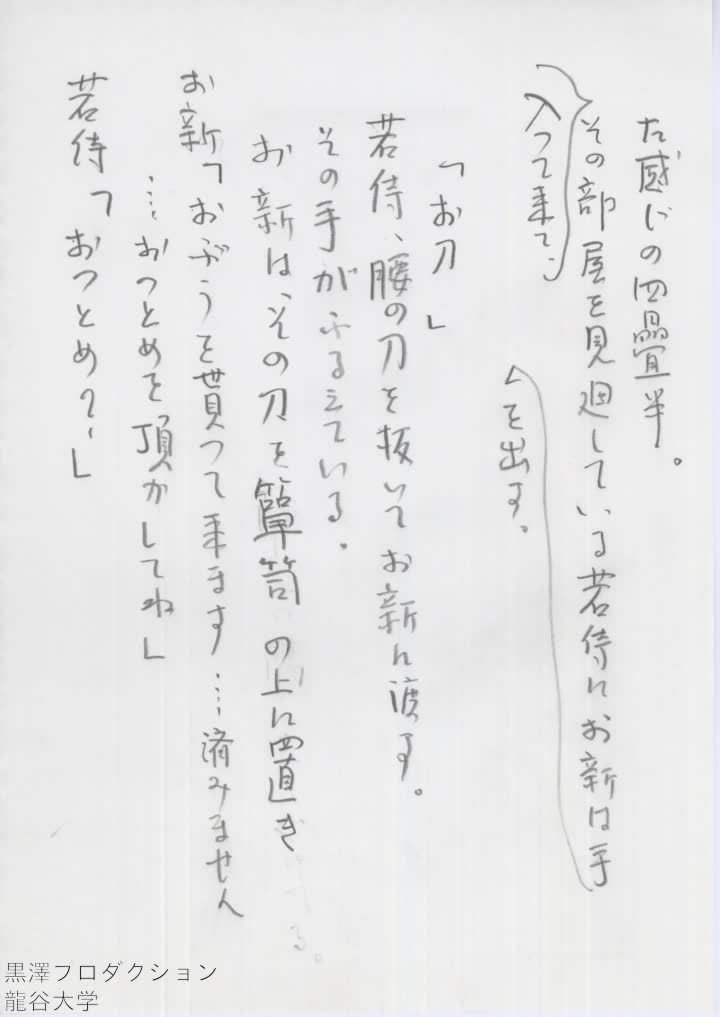 た感じの四畳半。
その部屋を見廻している若侍にお新は手
入って来て、
を出す。
「お刀」
若侍、腰の刀を抜いてお新に渡す。
その手がふるえている。
お新は、その刀を箪笥の上に置き
お新「おぶうを貰って来ます……済みません
……おつとめを頂かしてね」
若侍「おつとめ?」
黒澤プロダクション
龍谷大学